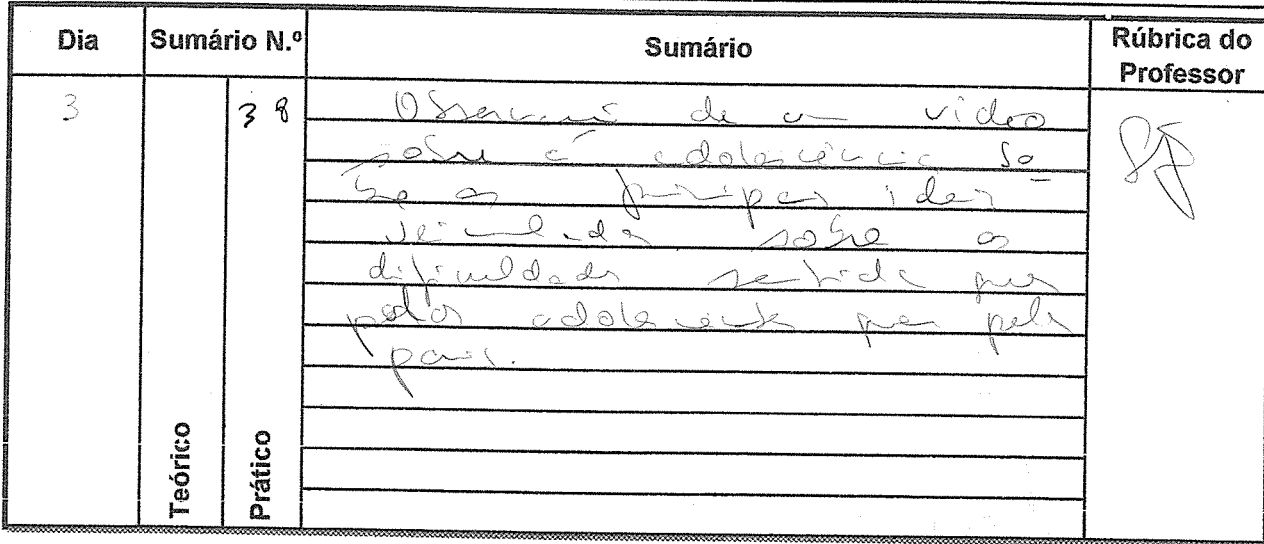 Dia Sumário N.º Sumário Rúbrica do Professor
3 38 Observação de um vídeo
sobre a adolescência So
bre as principais ideias
veiculadas sobre as
dificuldades sentidas quer
pelos adolescentes quer pelos
pais.
Teórico Prático